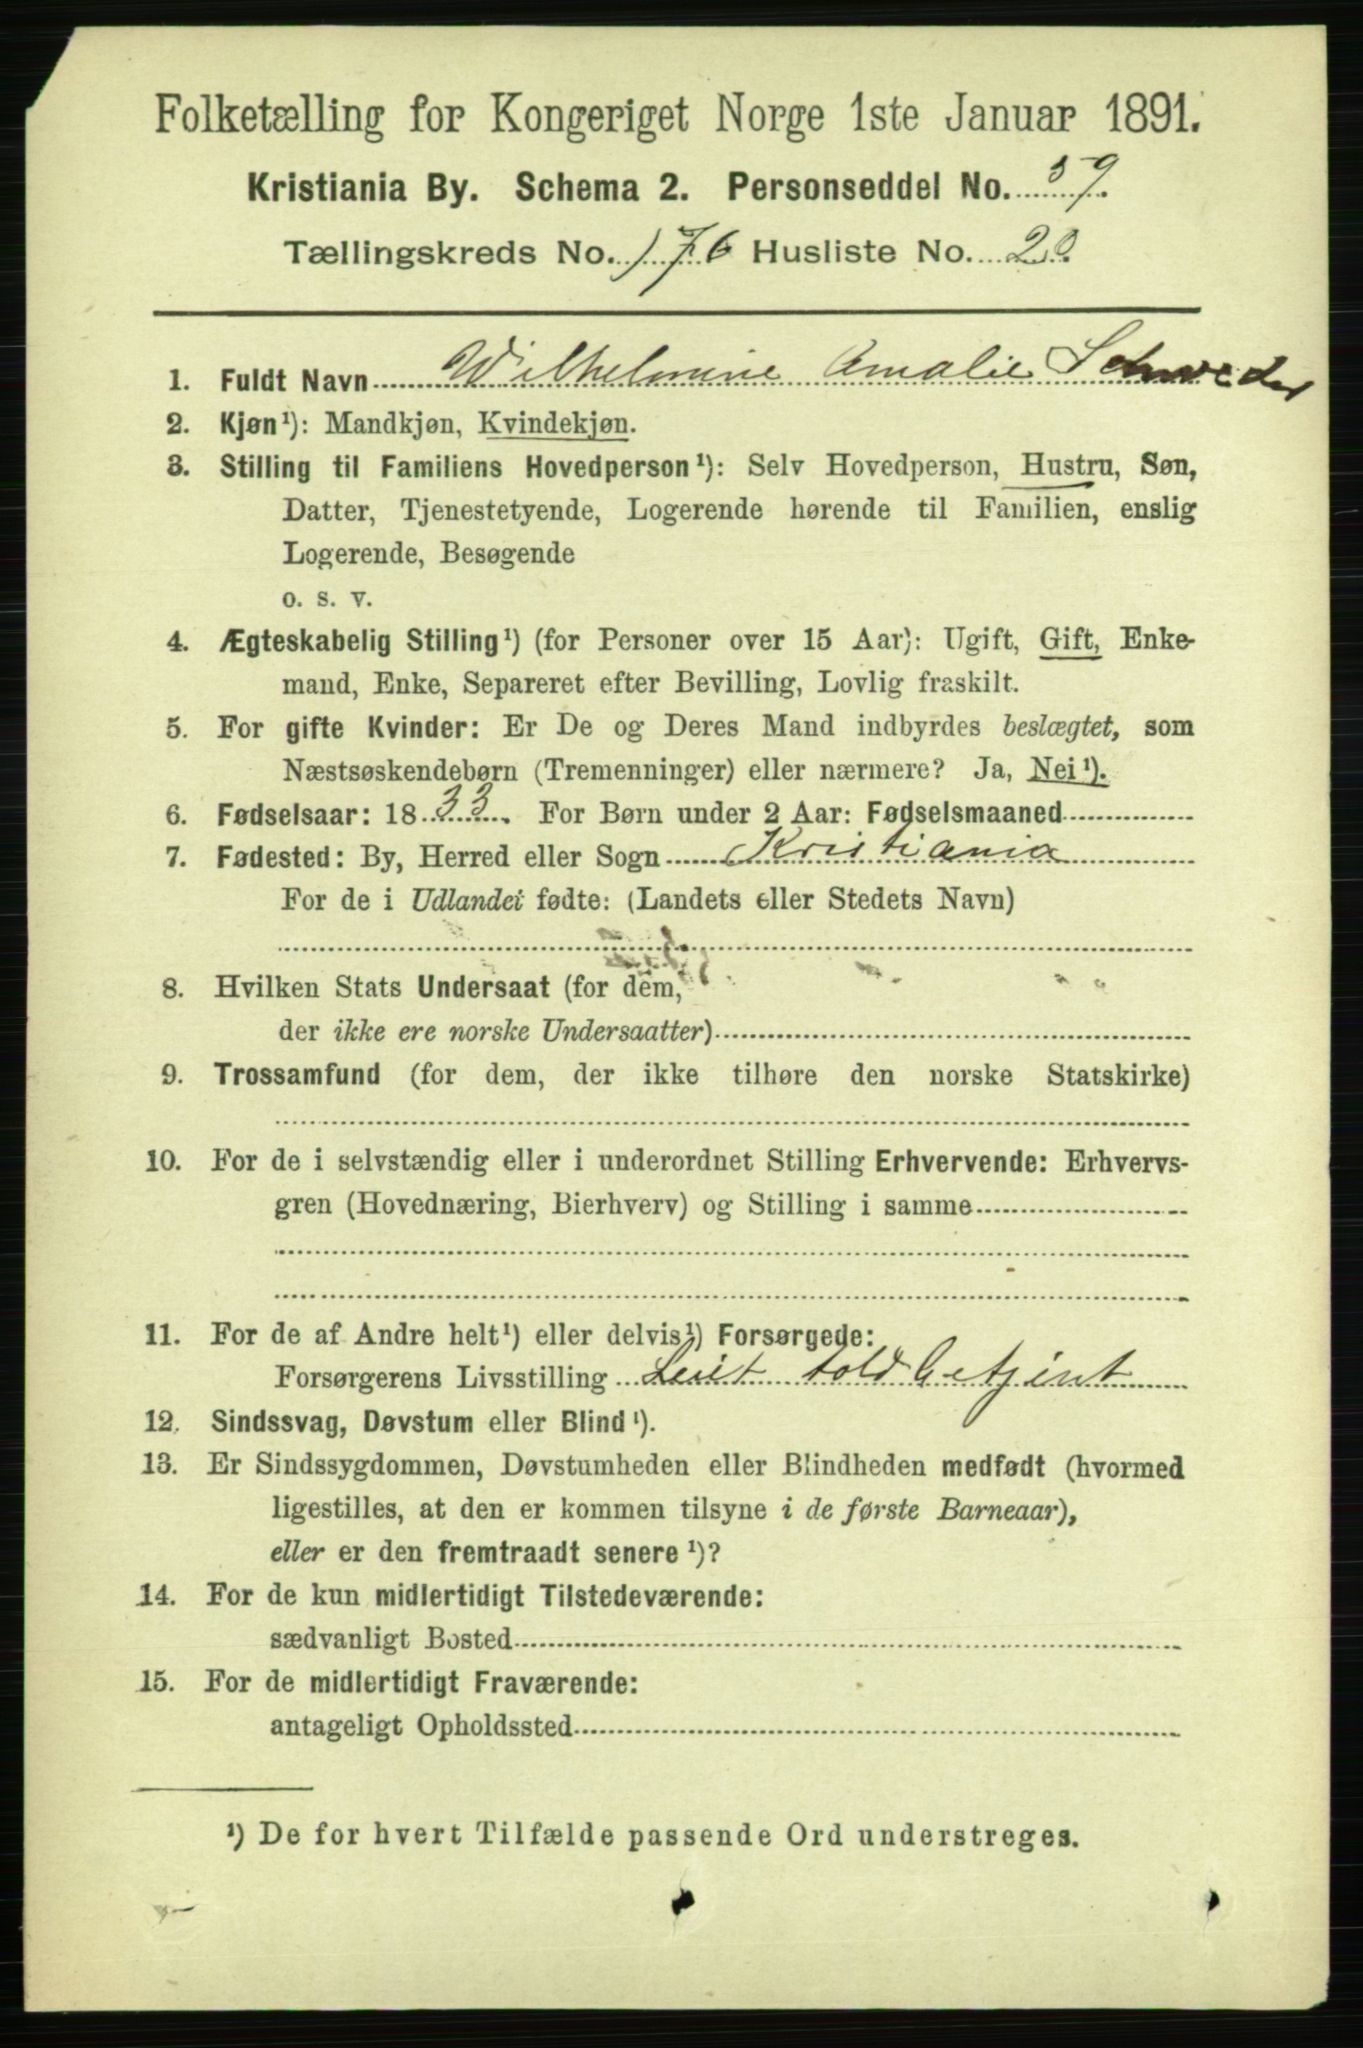 Folketælling for Kongeriget Norge 1ste Januar 1891.
Kristiania By. Schema 2. Personseddel No. 39.
Tællingskreds No. 176 Husliste No. 20
1. Fuldt Navn Wilhelmine Amalie Schrøder
2. Kjøn¹): Mandkjøn, Kvindekjøn.
3. Stilling til Familiens Hovedperson¹): Selv Hovedperson, Hustru, Søn,
Datter, Tjenestetyende, Logerende hørende til Familien, enslig
Logerende, Besøgende
o. s. v.
4. Ægteskabelig Stilling¹) (for Personer over 15 Aar): Ugift, Gift, Enke-
mand, Enke, Separeret efter Bevilling, Lovlig fraskilt.
5. For gifte Kvinder: Er De og Deres Mand indbyrdes beslægtet, som
Næstsøskendebørn (Tremenninger) eller nærmere? Ja, Nei¹).
6. Fødselsaar: 1833. For Børn under 2 Aar: Fødselsmaaned
7. Fødested: By, Herred eller Sogn Kristiania
For de i Udlandet fødte: (Landets eller Stedets Navn)
8. Hvilken Stats Undersaat (for dem,
der ikke ere norske Undersaatter)
9. Trossamfund (for dem, der ikke tilhøre den norske Statskirke)
10. For de i selvstændig eller i underordnet Stilling Erhvervende: Erhvervs-
gren (Hovednæring, Bierhverv) og Stilling i samme
11. For de af Andre helt¹) eller delvis¹) Forsørgede:
Forsørgerens Livsstilling told betjent
12. Sindssvag, Døvstum eller Blind¹).
13. Er Sindssygdommen, Døvstumheden eller Blindheden medfødt (hvormed
ligestilles, at den er kommen tilsyne i de første Barneaar),
eller er den fremtraadt senere¹)?
14. For de kun midlertidigt Tilstedeværende:
sædvanligt Bosted
15. For de midlertidigt Fraværende:
antageligt Opholdssted
¹) De for hvert Tilfælde passende Ord understreges.